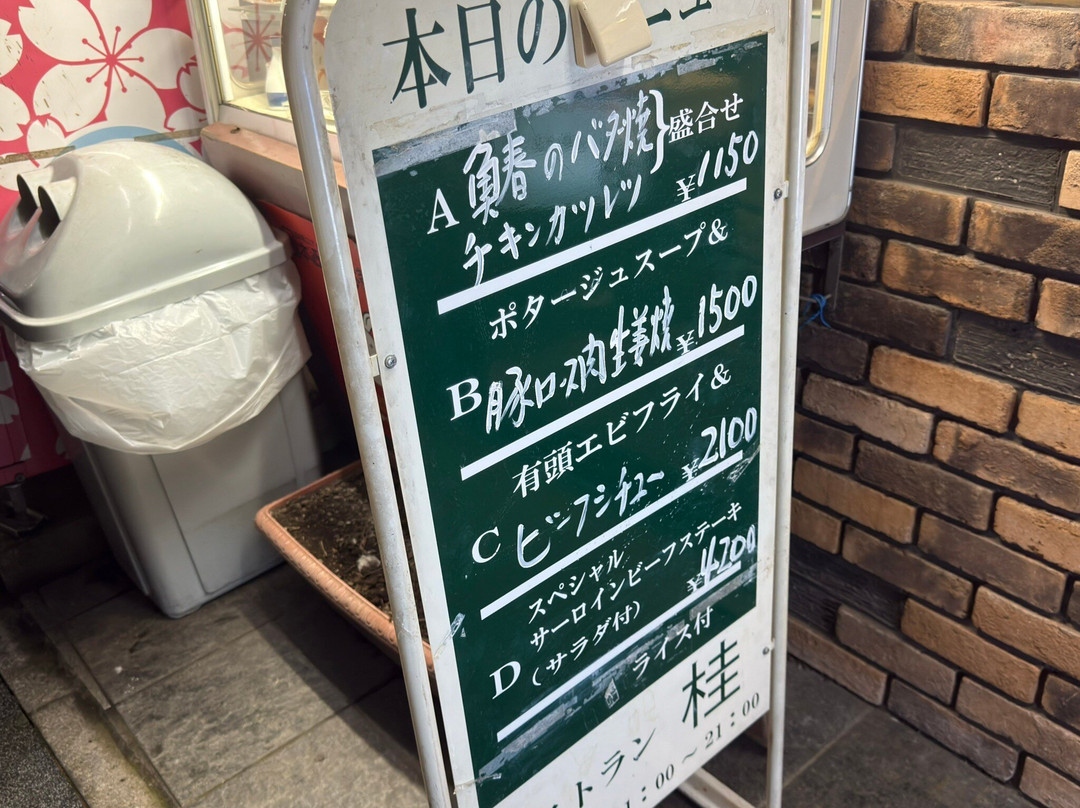 本日の
A 鰆のバタ焼 } 盛合せ
チキンカツレツ ¥1150
ポタージュスープ&
B 豚ロース肉生姜焼 ¥1500
有頭エビフライ&
C ビーフシチュー ¥2100
スペシャル
サーロインビーフステーキ
D (サラダ付) ¥4200
ライス付
トラン 桂
:00～21:00